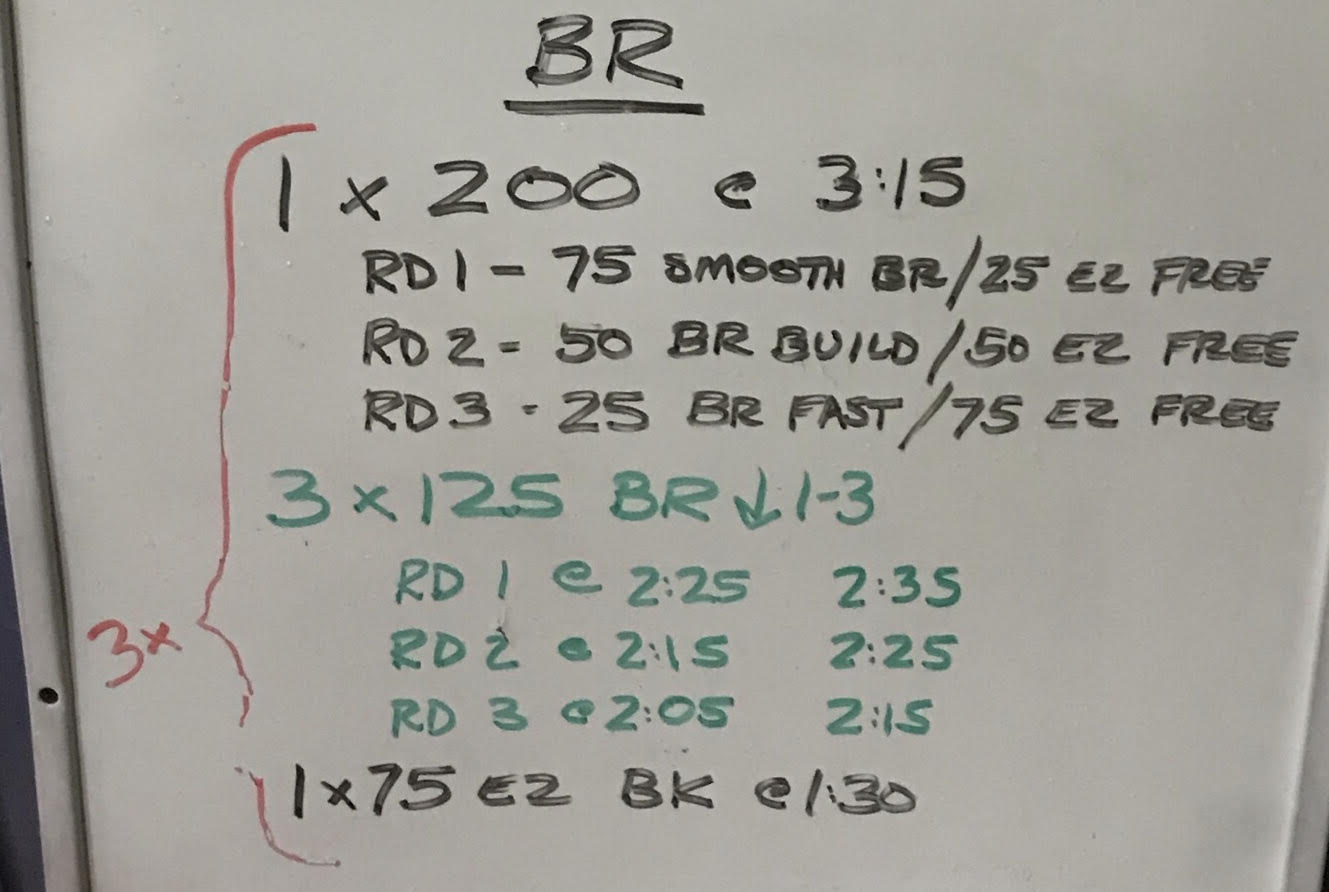 BR
1 x 200 @ 3:15
RD 1 - 75 SMOOTH BR/25 EZ FREE
RD 2 - 50 BR BUILD/50 EZ FREE
RD 3 - 25 BR FAST/75 EZ FREE
3 x 125 BR ↓ 1-3
RD 1 @ 2:25 2:35
RD 2 @ 2:15 2:25
3x
RD 3 @ 2:05 2:15
1 x 75 EZ BK @ 1:30